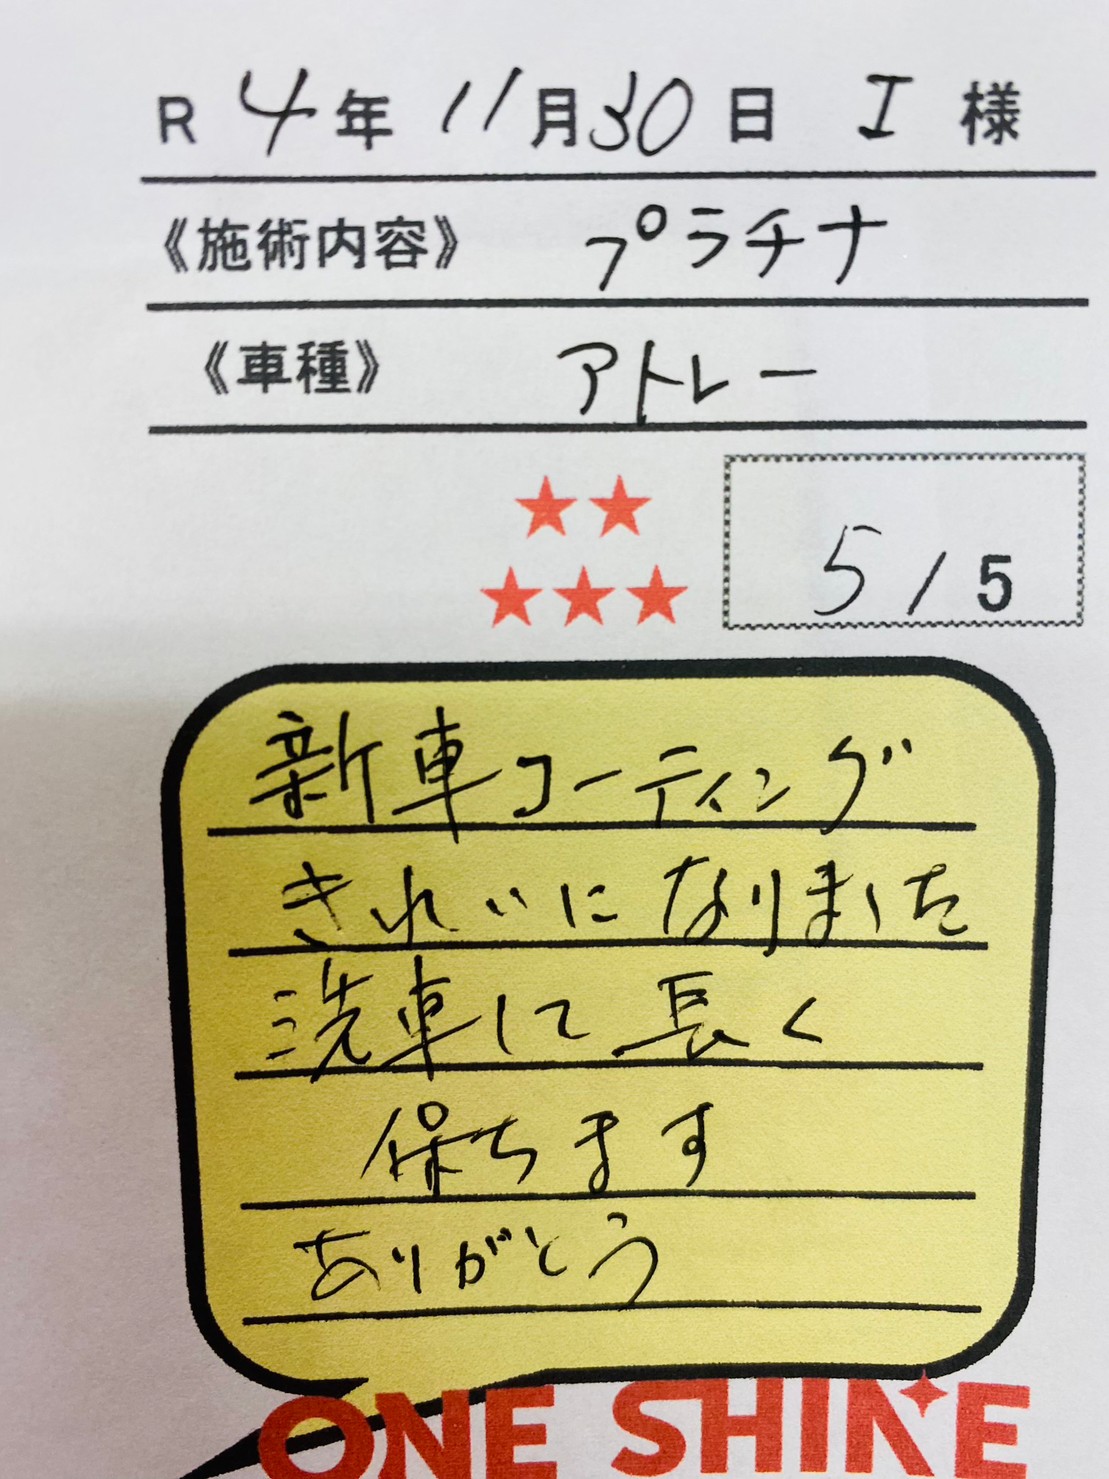 R 4年 11月30日 I 様
《施術内容》 プラチナ
《車種》 アトレー
★★
★★★
5/5
新車コーティング
きれいになりました
洗車して長く
保ちます
ありがとう
ONE SHINE